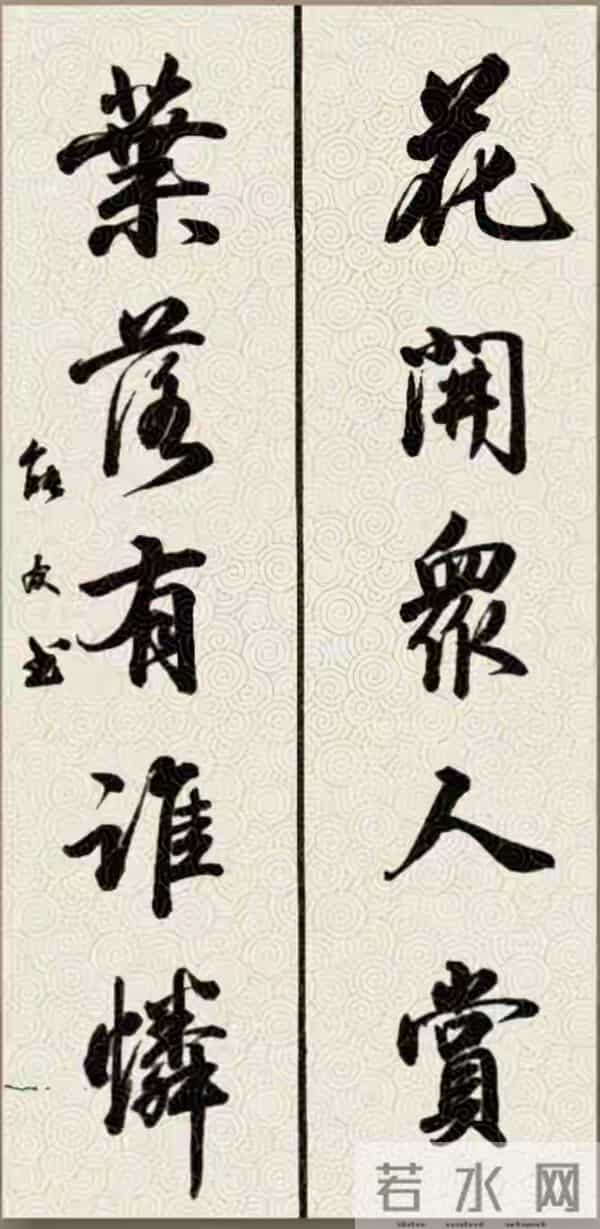 花開眾人賞
葉落有誰憐
能友书
若水网